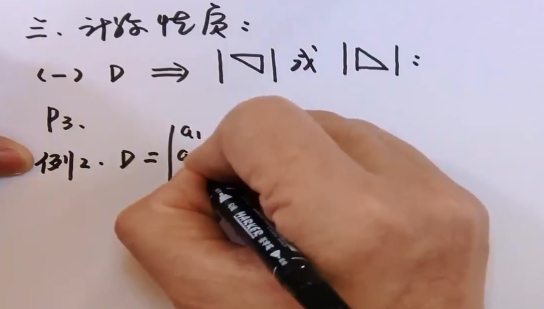 三、计算性质:
(一) D ⇒ |◹| 或 |◺|:
P3、
例2. D = | a₁
MARKER